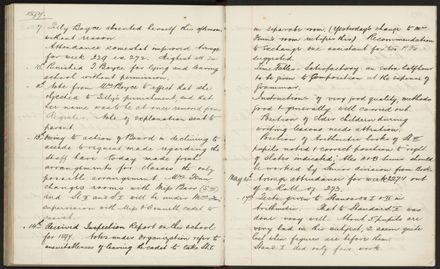 1894.
7. Lilly Boyce absented herself this afternoon
without reason.
Attendance somewhat improved. Average
for week 229 ex 273. Highest
Punished T. Boyce for lying and leaving
school without permission.
Note from Mrs Boyce to effect that she
objected to Lilly's punishment and that
her name was to be at once removed from
Register. Note of explanation sent to
parent.
13th Owing to action of Board in declining to
accede to request made regarding the
staff have today made fresh
arrangements for classes the only
possible arrangement. Mrs
changes rooms with Miss
and St. I and II will be under Mrs
supervision with Miss O'Connell cadet to
assist.
14th Received Inspection Report on this school
for 1894. Notes under Organization refer to
unsuitableness of leaving the cadet to take St. I
in separate room (Yesterday's change to
room rectifies this) Recommendation
to exchange one assistant for two P.Ts
suggested.
Satisfactory an extra half hour
to be given to Composition at the expense of
Grammar.
Instruction of very good quality, methods
good & generally well carried out.
Position of older children during
writing lessons needs attention.
Position of arithmetic books of St III
pupils noted & correct position to right
of slates indicated. also should
be worked by Senior division from Book.
Average attendance for week 227.4 out
of a Roll of 273.
17th Tests given to Standards I & II in
arithmetic. That of Standard I was
done very well. About 5 pupils are
very bad in this subject, & seem quite
lost when figures are before them.
Stand. I did only fair work.